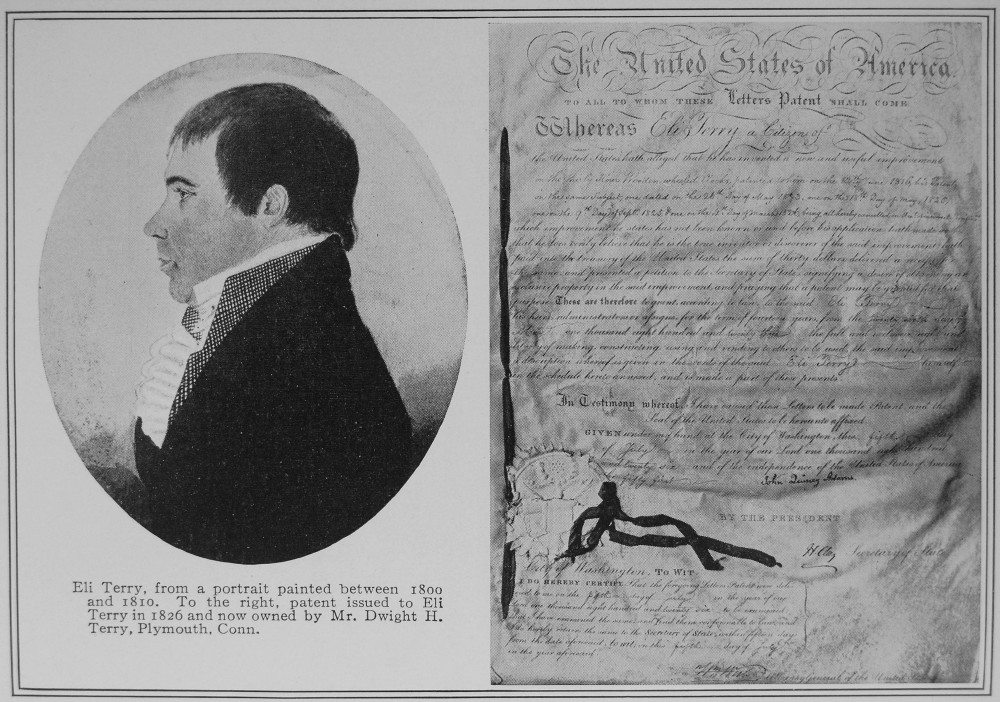 Eli Terry, from a portrait painted between 1800
and 1810. To the right, patent issued to Eli
Terry in 1826 and now owned by Mr. Dwight H.
Terry, Plymouth, Conn.
The United States of America
TO ALL TO WHOM THESE Letters Patent SHALL COME
Whereas Eli Terry a Citizen of
the United States, hath alleged that he has invented a new and useful improvement
in the
on the same subject, one dated on the Day of May
one on the Day of Sept. 1825
which improvement he states has not been known or used before his application, hath made oath
that he does verily believe that he is the true inventor or discoverer of the said improvement, hath
paid into the treasury of the United States the sum of thirty dollars, delivered a
and presented a petition to the Secretary of State, signifying a desire of obtaining an
exclusive property in the said improvement, and praying that a patent may be granted for that
purpose, These are therefore to grant, according to law, to the said Eli Terry
his heirs, administrators or assigns, for the term of fourteen years, from the
one thousand eight hundred and twenty the full and exclusive right and
liberty of making, constructing, using and vending to others to be used, the said improvement
a description whereof is given in the words of the said Eli Terry
in the schedule hereto annexed, and is made a part of these presents.
In Testimony whereof, I have caused these Letters to be made Patent, and the
Seal of the United States to be hereunto affixed.
GIVEN under my hand, at the City of Washington, this fifth day
of July in the year of our Lord one thousand eight hundred
and twenty six and of the independence of the United States of America
fifty first
John Quincy Adams.
BY THE PRESIDENT
H Clay Secretary of State
City of Washington, TO WIT.
I DO HEREBY CERTIFY, That the foregoing Letters Patent were
to me on the fifth day of July in the year of our
Lord one thousand eight hundred and twenty six to be examined
that I have examined the same, and find them conformable to law, and
I do hereby return the same to the Secretary of State, within fifteen days
from the date aforesaid, to wit, on this fifth day of July
in the year aforesaid
Attorney General of the United States